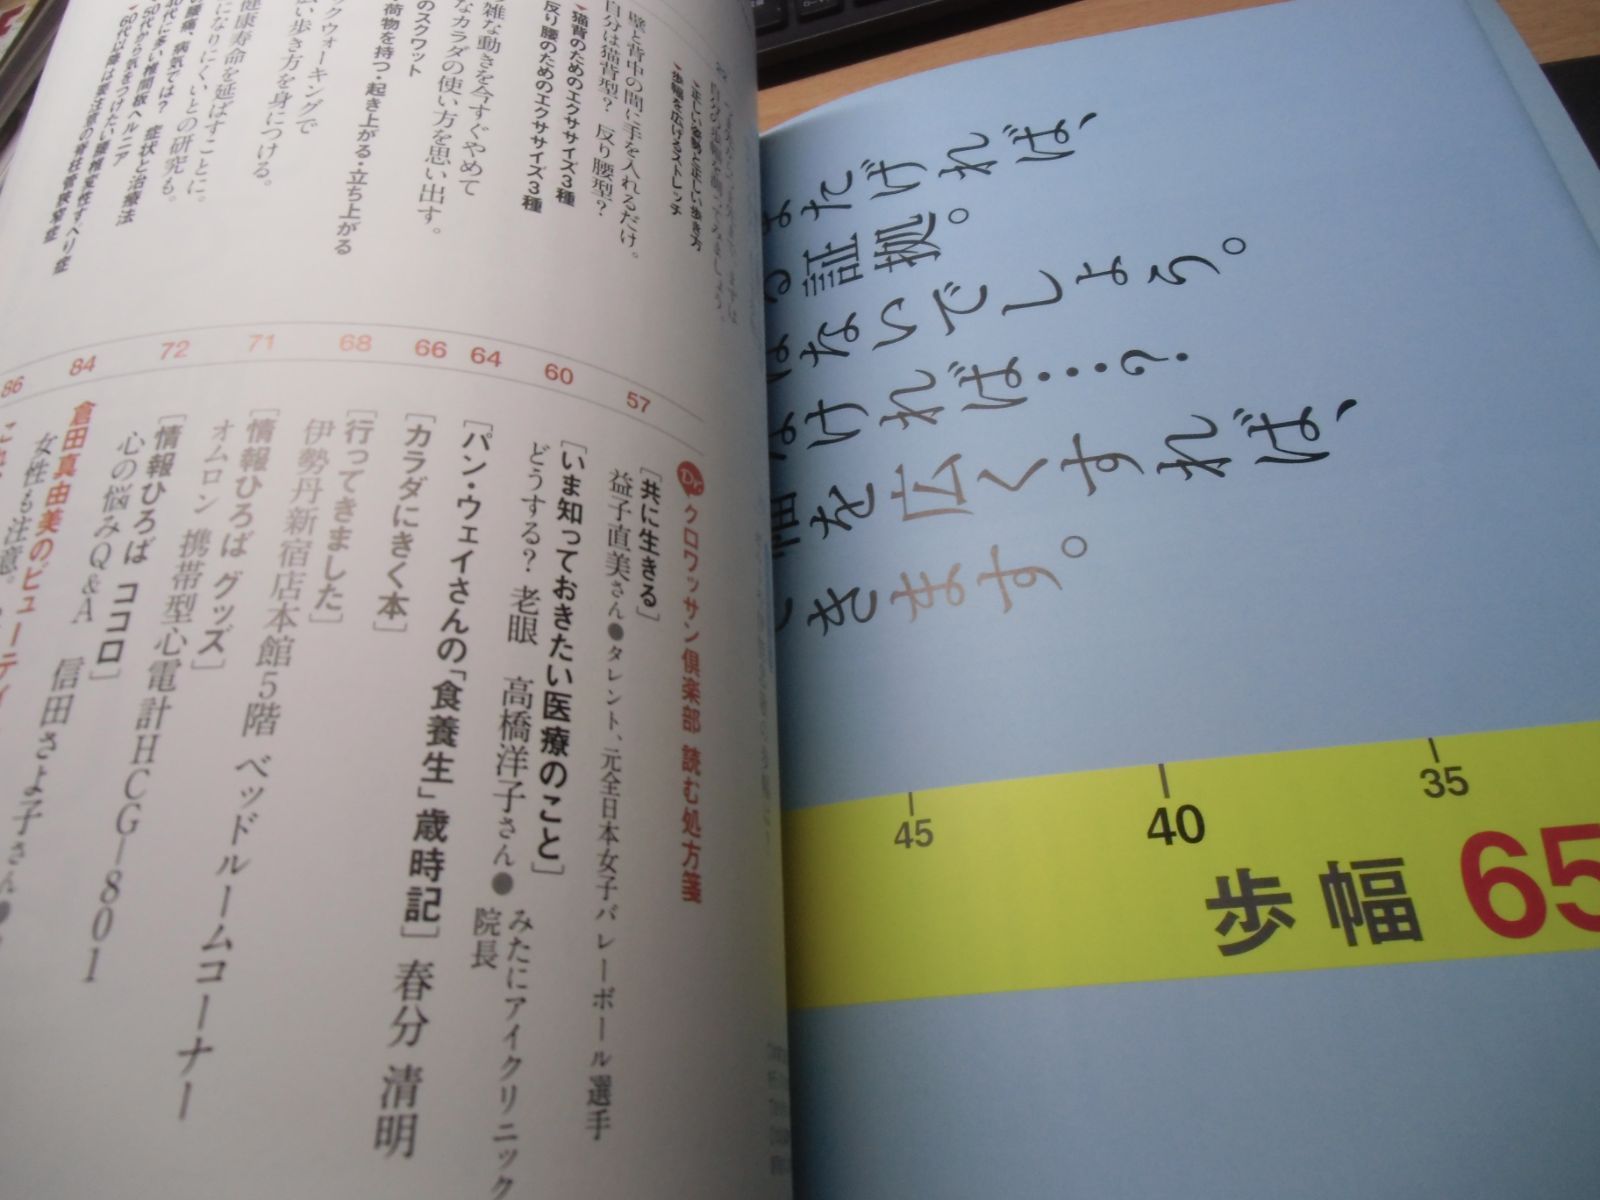 自分の歩幅を測ってみましょう。
正しい姿勢と正しい歩き方
歩幅を広げるストレッチ
壁と背中の間に手を入れるだけ。
自分は猫背型？ 反り腰型？
猫背のためのエクササイズ3種
反り腰のためのエクササイズ3種
雑な動きを今すぐやめて
なカラダの使い方を思い出す。
のスクワット
荷物を持つ・起き上がる・立ち上がる
ックウォーキングで
い歩き方を身につける。
健康寿命を延ばすことに。
になりにくいとの研究も。
腰痛、病気では? 症状と治療法
代に多い椎間板ヘルニア
50代から気をつけたい腰椎変性すべり症
60代以降は要注意の脊柱管狭窄症
57
60
64
66
68
71
72
84
86
Dr.クロワッサン倶楽部 読む処方箋
[共に生きる]
益子直美さん●タレント、元全日本女子バレーボール選手
[いま知っておきたい医療のこと]
どうする? 老眼 高橋洋子さん●みたにアイクリニック
院長
[パン・ウェイさんの「食養生」歳時記] 春分 清明
[カラダにきく本]
[行ってきました]
伊勢丹新宿店本館5階 ベッドルームコーナー
[情報ひろば グッズ]
オムロン 携帯型心電計HCG-801
[情報ひろば ココロ]
心の悩みQ&A 信田さよ子さん●
倉田真由美のビューティ
女性も注意。
まだければ、
証拠。
はないでしょう。
なければ…?
幅を広くすれば、
きます。
45
40
35
歩幅 65